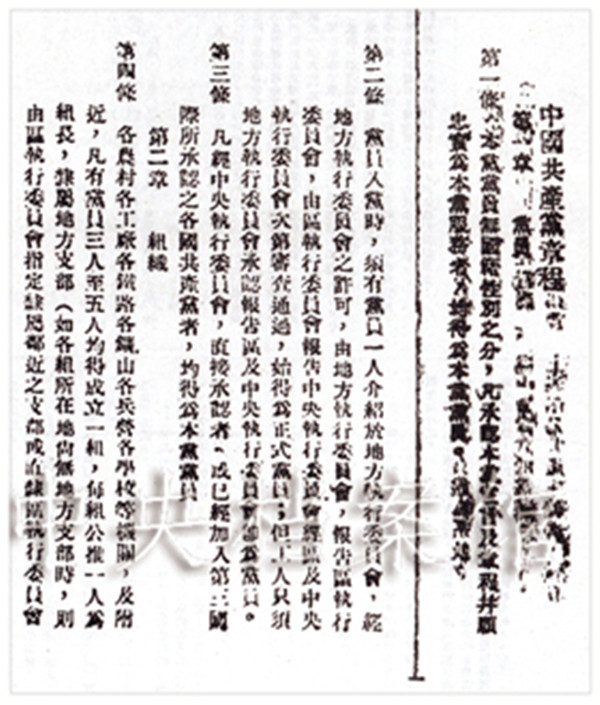 中國共產黨章程
第一章　黨員
第一條　本黨黨員無國籍性別之分，凡承認本黨宣言及章程并願
忠實為本黨服務者，均得為本黨黨員。
第二條　黨員入黨時，須有黨員一人介紹於地方執行委員會，經
地方執行委員會之許可，由地方執行委員會，報告區執行
委員會，由區執行委員會報告中央執行委員會經區及中央
執行委員會次第審查通過，始得為正式黨員；但工人只須
地方執行委員會承認報告區及中央執行委員會即為黨員。
第三條　凡經中央執行委員會，直接承認者，或已經加入第三國
際所承認之各國共產黨者，均得為本黨黨員
第二章　組織
第四條　各農村各工廠各鐵路各鑛山各兵營各學校等機關，及附
近，凡有黨員三人至五人均得成立一組，每組公推一人為
組長，隸屬地方支部（如各組所在地尚無地方支部時，則
由區執行委員會指定隸屬鄰近之支部或直隸區執行委員會
中央档案馆